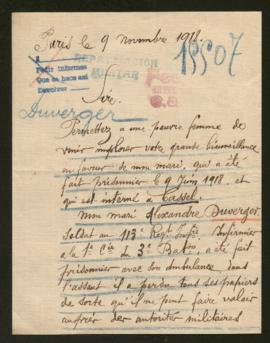 Paris le 9 novembre 1918.
18807
REPATRIACION
MILITAR
Pedir informes
Que se hace asi
Sire,
Duverger
Permettez a une pauvre femme de
venir implorer votre grande bienveillance
en faveur de mon mari, qui a été
fait prisonnier le 9 Juin 1918 et
qui est interné a Cassel.
Mon mari Alexandre Duverger
Soldat au 113e Regt Infie Infirmier
a la 1e Cie 3e Baton, a été fait
prisonnier avec son ambulance dans
l'assaut il a perdu tous ses papiers
de sorte qu'il ne peut faire valoir
auprès des autorités militaires